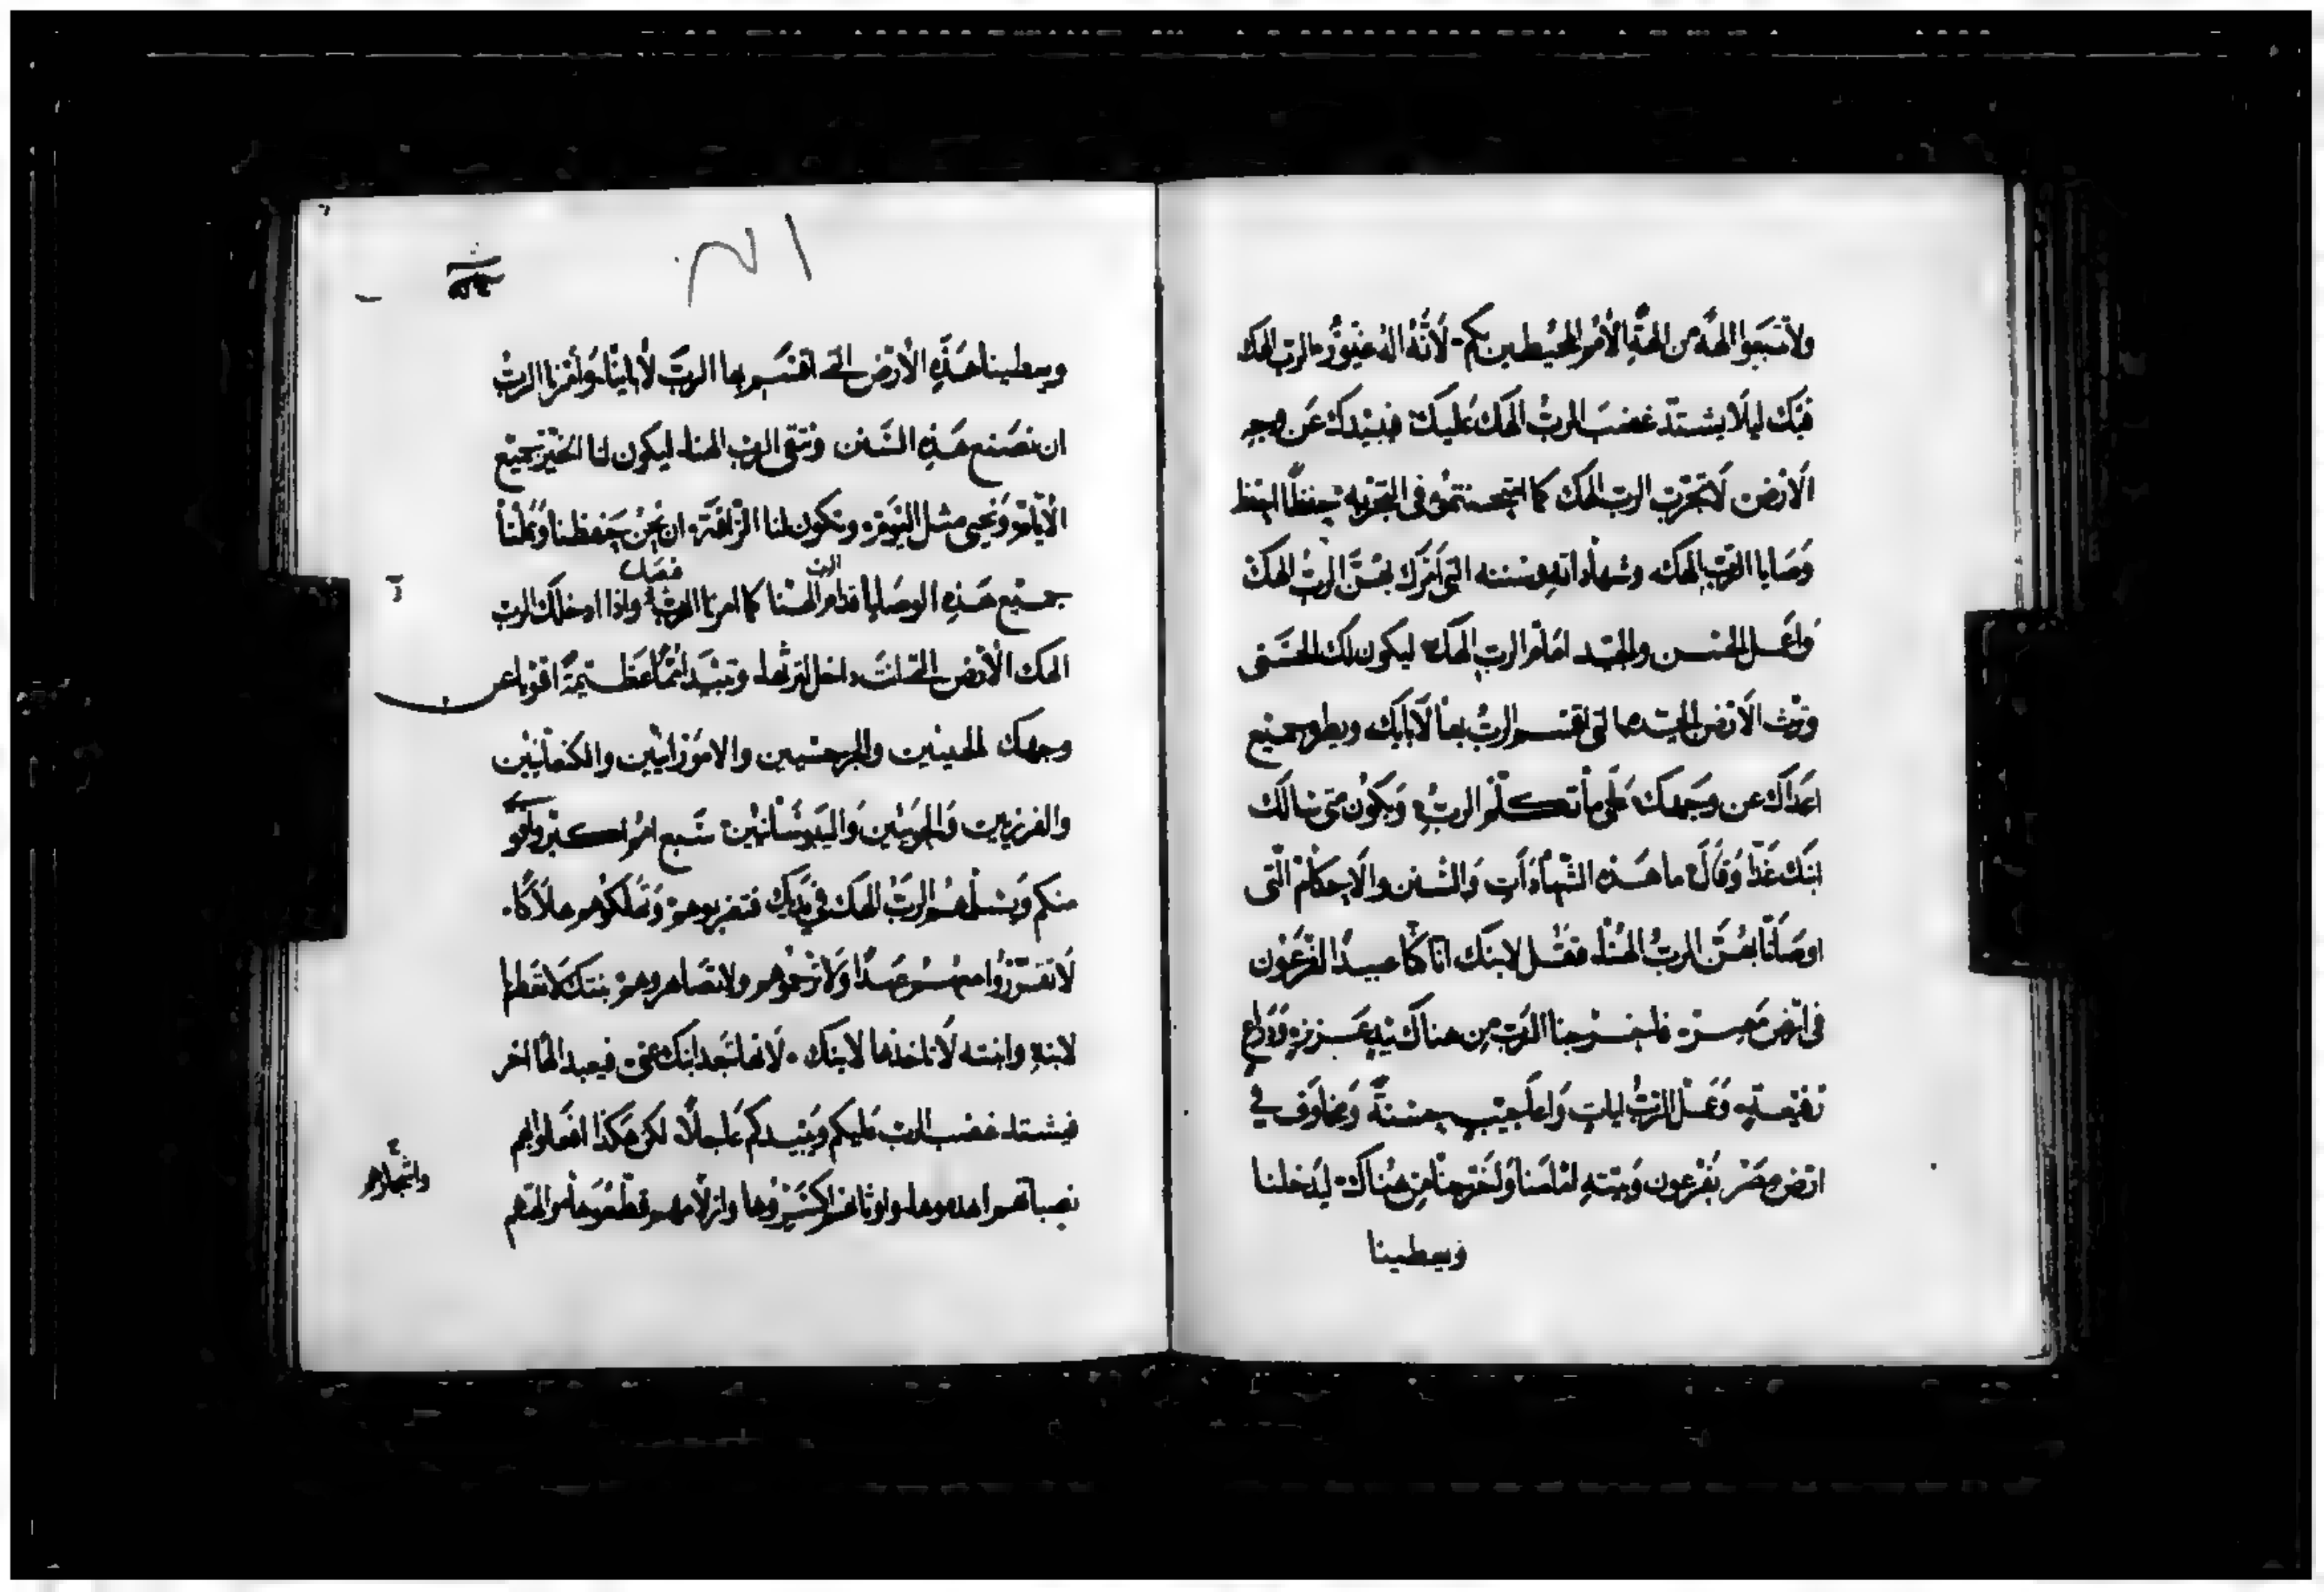 ولا تتبعوا الهة من الهة الامم المحيطين بكم لانه اله غيور الرب الهك
فيك ليلا يشتد غضب الرب الهك عليك فيبيدك عن وجه
الارض لا تجرب الرب الهك كما امتحنتموه في التجربه حفظا احفظ
وصايا الرب الهك وشهاداته وسننه التي امرك بهن الرب الهك
واعمل الحسن والجيد امام الرب الهك ليكون لك الحسنى
وترث الارض الجيده التي اقسم الرب بها لابايك ويطرد جميع
اعداك عن وجهك على ما تكلم الرب ويكون متى سالك
ابنك غدا وقال ما هذه الشهادات والسنن والاحكام التي
اوصانا بهن الرب الهنا فقل لابنك انا كنا عبيدا لفرعون
في ارض مصر فاخرجنا الرب من هناك بيد عزيزه وذراع
رفيعه وعمل الرب ايات واعاجيب حسنة ومخاوف في
ارض مصر بفرعون وبيته امامنا واخرجنا من هناك ليدخلنا
ويعطينا
١٢١
ويعطينا هذه الارض التي اقسم بها الرب لاباينا وامرنا الرب
ان نصنع هذه السنن ونتقي الرب الهنا ليكون لنا الخير جميع
الايام ونحيى مثل اليوم وتكون لنا الرافة ان نحن حفظنا وعملنا
جميع هذه الوصايا قدام الرب الهنا كما امرنا الرب فصل واذا ادخلك الرب
الهك الارض التي انت داخل لترثها وتبيد امما عظيمة اقويا عن
وجهك الحيثيين والجرجسيين والامورانيين والكنعانيين
والفرزيين والحويين واليبوسانيين سبع امم اكبر واقوى
منكم ويسلمهم الرب الهك في يديك فتضربوهم وتهلكوهم هلاكا
لا تقرروا معهم عهدا ولا ترحموهم ولا تصاهروهم بنتك لا تعطها
لابنه وابنته لا تاخذها لابنك لانها تبعد ابنك عني فيعبد الها اخر
فيشتد غضب الرب عليكم ويبيدكم عاجلا لكن هكذا افعلوا بهم
نصباتهم اهدموها واوثانهم اكسروها وازلامهم قطعوها والهتهم